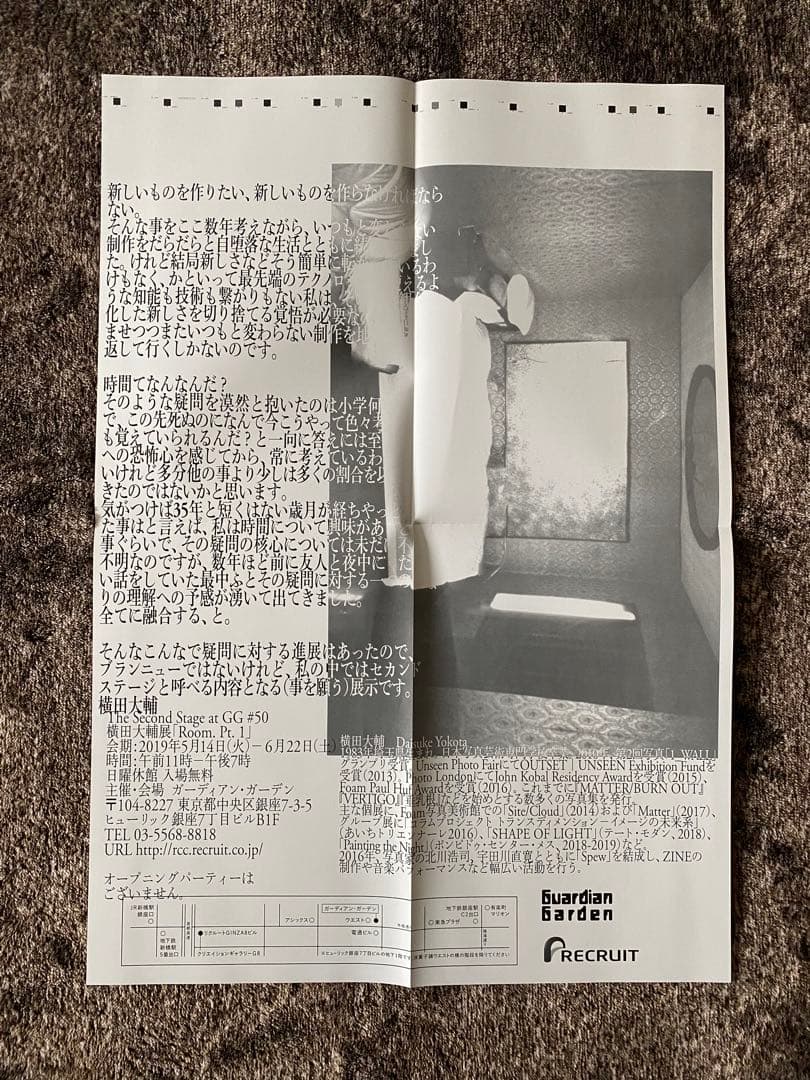 新しいものを作りたい、新しいものを作らなければなら
ない。
そんな事をここ数年考えながら、いつも
制作をだらだらと自堕落な生活とともに
た。けれど結局新しさなどそう簡単に いるわ
けもなく、かといって最先端のテクノロ
うな知能も技術も繋がりもない私は、
化した新しさを切り捨てる覚悟が必要だ
ませつつまたいつもと変わらない制作を
返して行くしかないのです。
時間てなんなんだ？
そのような疑問を漠然と抱いたのは小学
で、この先死ぬのになんで今こうやって色々
も覚えていられるんだ？と一向に答えには至
への恐怖心を感じてから、常に考えているわ
いけれど多分他の事より少しは多くの割合を
きたのではないかと思います。
気がつけば35年と短くはない歳月が経ちやっ
た事はと言えば、私は時間について興味があ
事ぐらいで、その疑問の核心については未だ
不明なのですが、数年ほど前に友人と夜中に
い話をしていた最中ふとその疑問に対する一
りの理解への予感が湧いて出てきました。
全てに融合する、と。
そんなこんなで疑問に対する進展はあったので、
ブランニューではないけれど、私の中ではセカンド
ステージと呼べる内容となる（事を願う）展示です。
横田大輔
The Second Stage at GG #50
横田大輔展「Room. Pt. 1」
会期：2019年5月14日（火）－6月22日（土）
時間：午前11時－午後7時
日曜休館 入場無料
主催・会場 ガーディアン・ガーデン
〒104-8227 東京都中央区銀座7-3-5
ヒューリック銀座7丁目ビルB1F
TEL 03-5568-8818
URL http://rcc.recruit.co.jp/
オープニングパーティーは
ございません。
横田大輔 Daisuke Yokota
1983年埼玉県生まれ。日本写真芸術専門学校卒業。2010年、第2回写真「1_WALL」
グランプリ受賞。Unseen Photo FairにてOUTSET | UNSEEN Exhibition Fundを
受賞（2013）、Photo LondonにてJohn Kobal Residency Awardを受賞（2015）、
Foam Paul Huf Awardを受賞（2016）。これまでに『MATTER/BURN OUT』
『VERTIGO』『垂乳根』などを始めとする数多くの写真集を発行。
主な個展に、Foam写真美術館での「Site/Cloud」（2014）および「Matter」（2017）、
グループ展に「コラムプロジェクト トランスディメンション－イメージの未来系」
（あいちトリエンナーレ2016）、「SHAPE OF LIGHT」（テート・モダン、2018）、
「Painting the Night」（ポンピドゥ・センター・メス、2018-2019）など。
2016年、写真家の北川浩司、宇田川直寛とともに「Spew」を結成し、ZINEの
制作や音楽パフォーマンスなど幅広い活動を行う。
Guardian
Garden
RECRUIT
JR新橋駅
銀座口
地下鉄
新橋駅
5番出口
リクルートGINZA8ビル
クリエイションギャラリーG8
アシックス
ガーディアン・ガーデン
ウエスト
電通ビル
※ヒューリック銀座7丁目ビルの地下1階です
洋菓子舗ウエストの横の階段を降りてください
東急プラザ
地下鉄銀座駅
C2出口
有楽町
マリオン